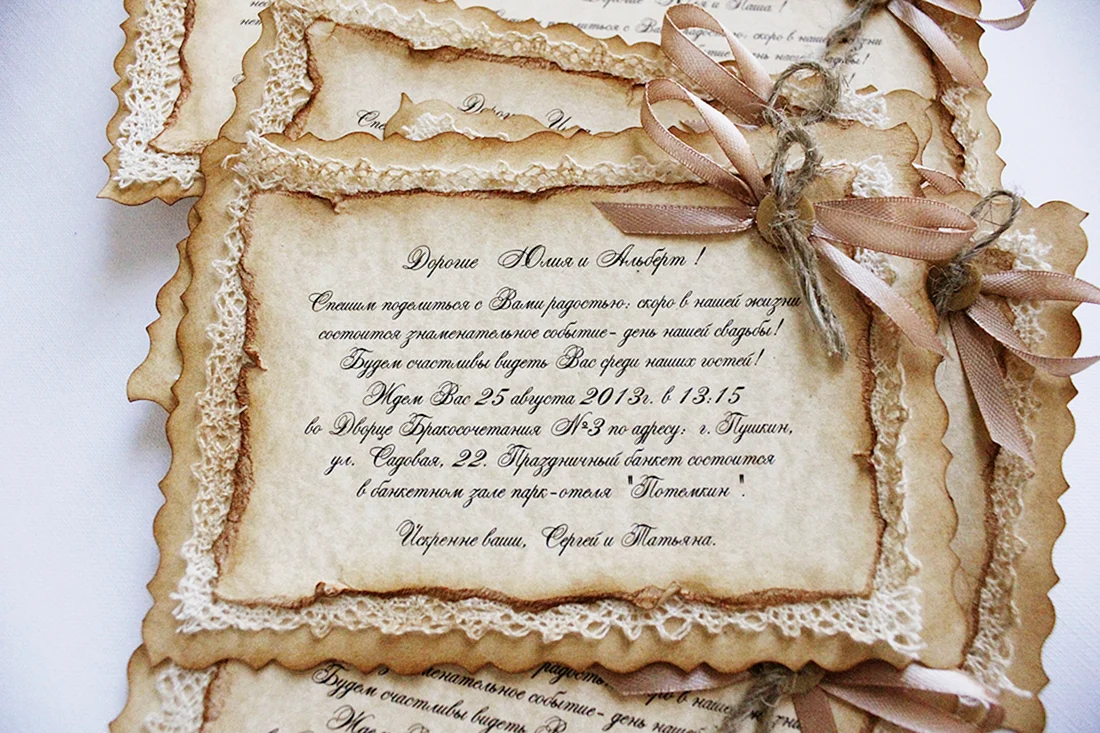 Дорогие Юлия и Паша !
скоро в нашей жизни
Дорог
Спе
Дорогие Юлия и Альберт !
Спешим поделиться с Вами радостью: скоро в нашей жизни
состоится знаменательное событие- день нашей свадьбы!
Будем счастливы видеть Вас среди наших гостей!
Ждем Вас 25 августа 2013г. в 13:15
во Дворце Бракосочетания №3 по адресу: г. Пушкин,
ул. Садовая, 22. Праздничный банкет состоится
в банкетном зале парк-отеля "Потемкин ".
Искренне ваши, Сергей и Татьяна.
радостью: скоро в нашей жизни
знаменательное событие- день нашей
Будем счастливы видеть Вас среди на
Ждем Вас 25 ав